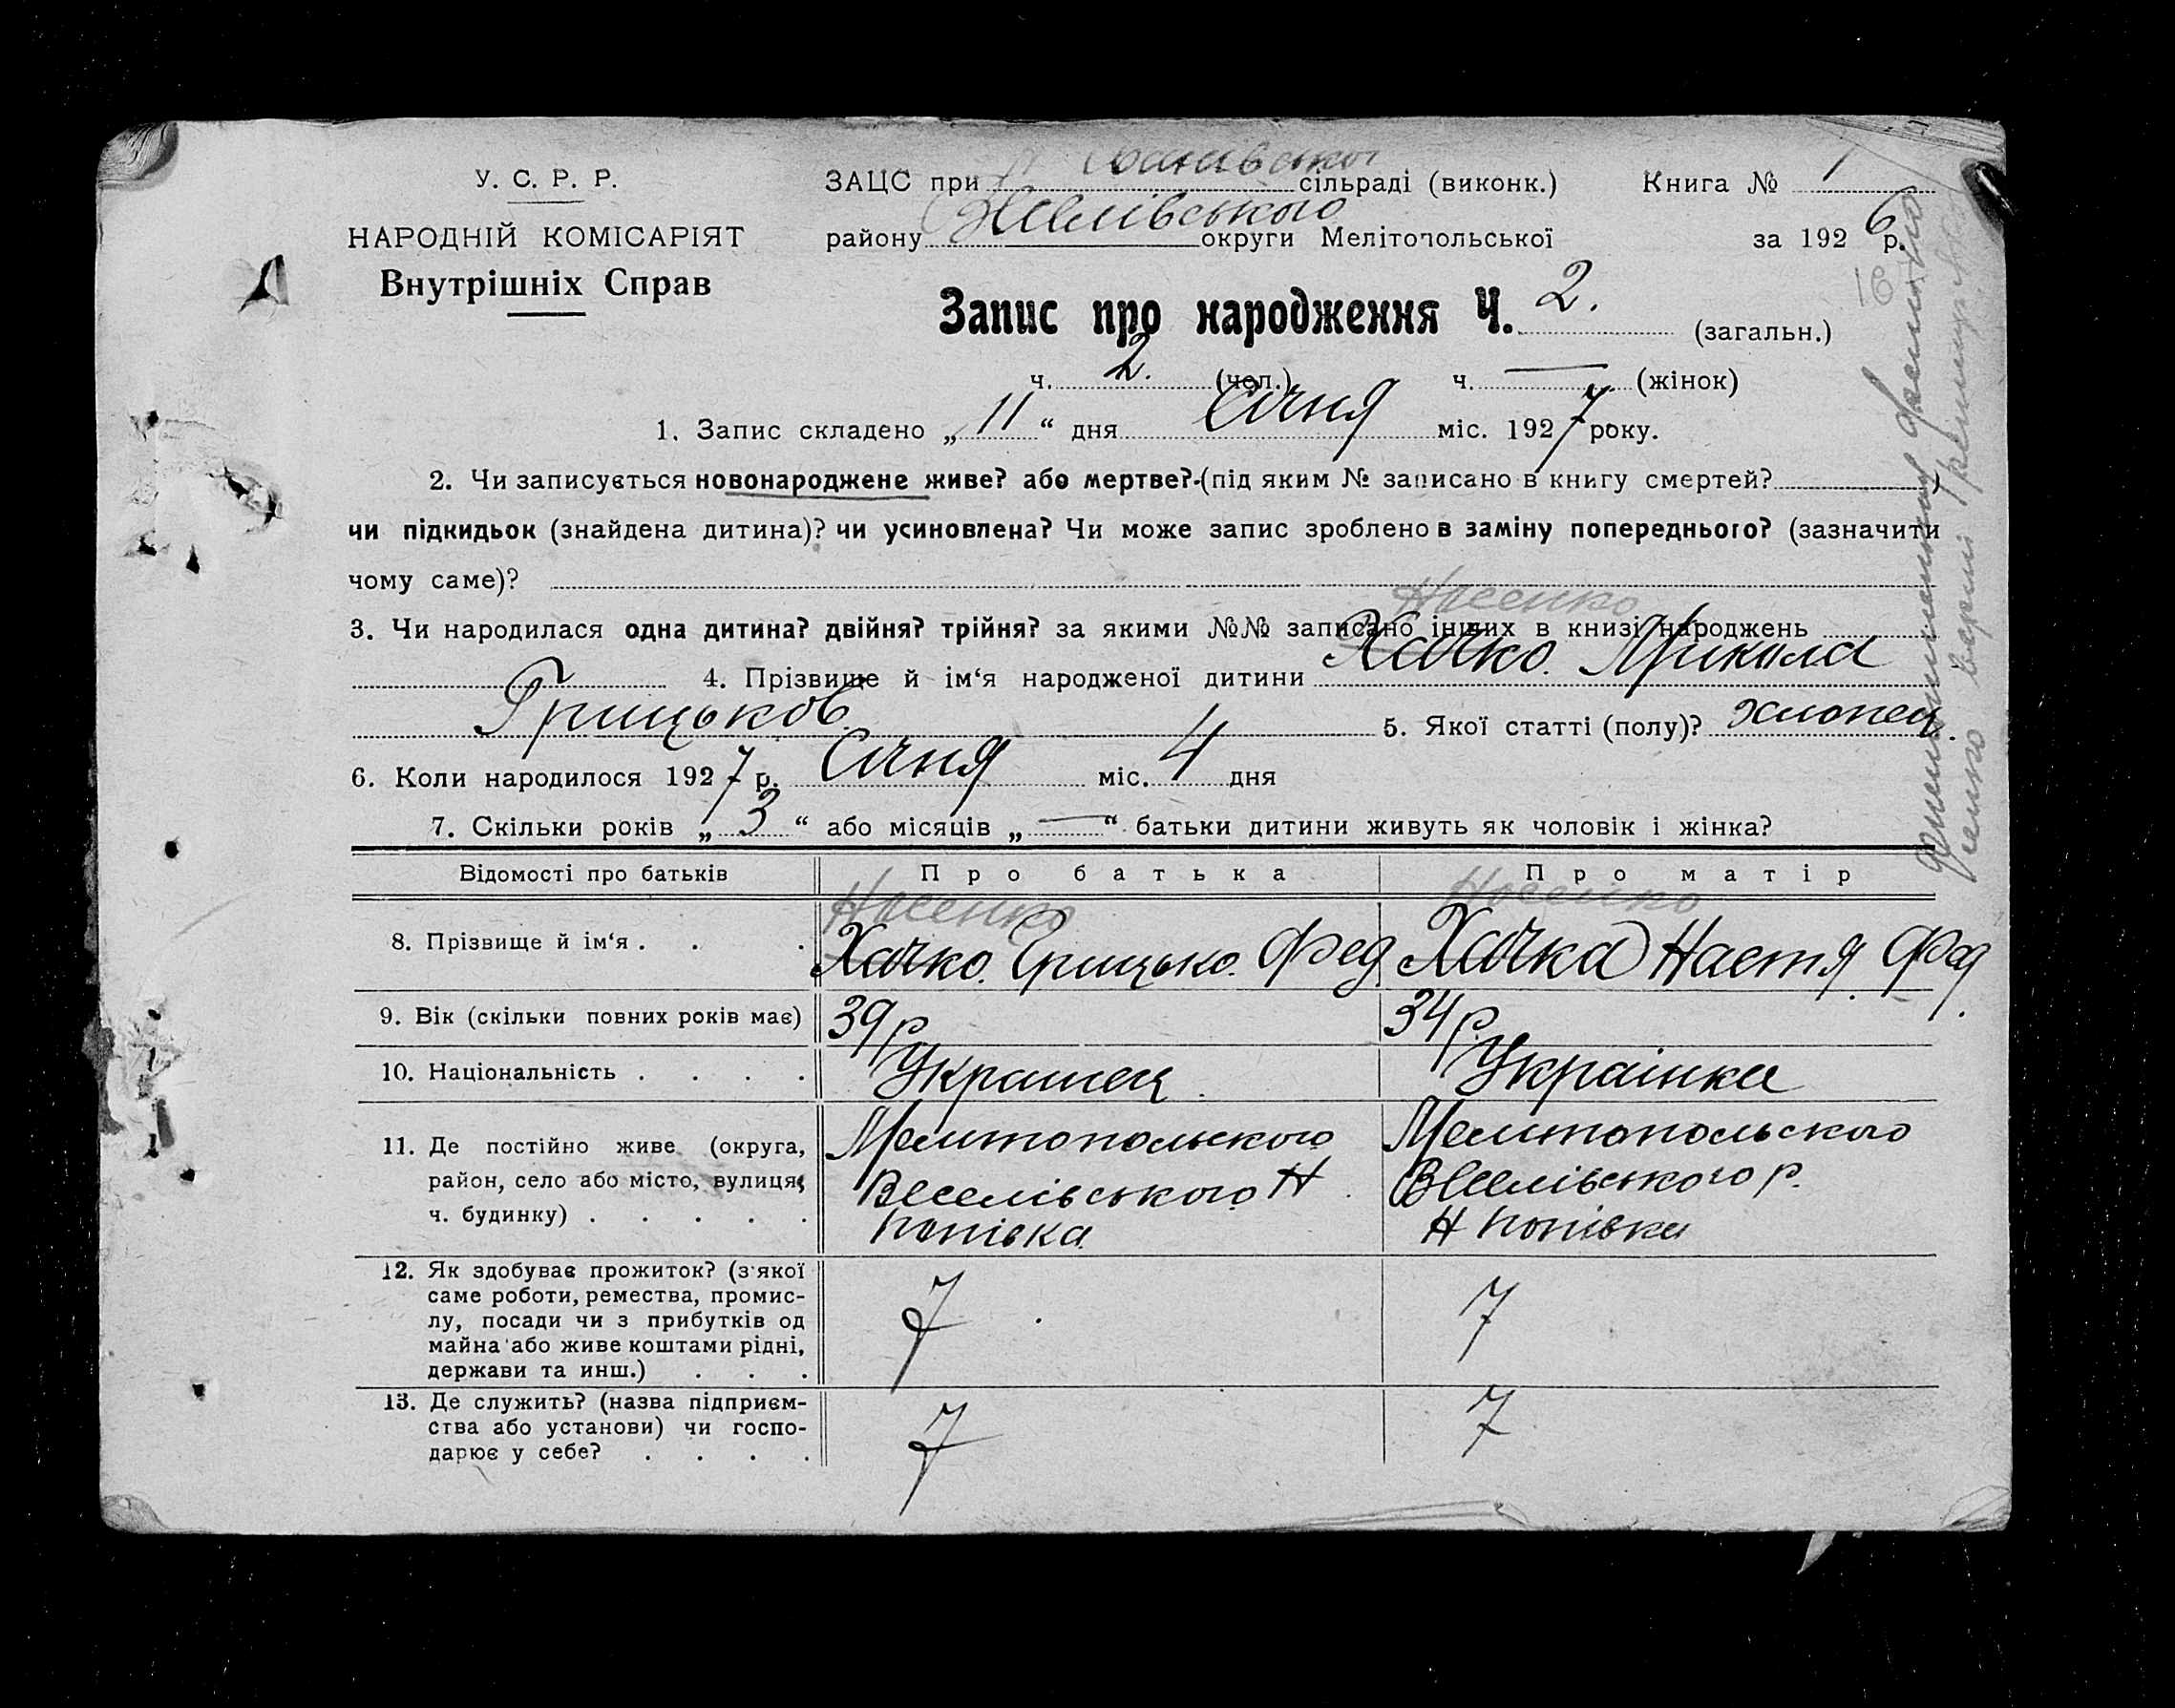 У. С. Р. Р.
НАРОДНІЙ КОМІСАРІЯТ
Внутрішніх Справ
ЗАЦС при сільраді (виконк.) Книга № 1
району Веселівського округи Мелітопольської за 1926 р.
16
Запис про народження Ч. 2. (загальн.)
ч. 2. (чол.) ч. — (жінок)
1. Запис складено „11“ дня Січня міс. 1927 року.
2. Чи записується новонароджене живе? або мертве? (під яким № записано в книгу смертей?
чи підкидьок (знайдена дитина)? чи усиновлена? Чи може запис зроблено в заміну попереднього? (зазначити
чому саме)?
Носенко
3. Чи народилася одна дитина? двійня? трійня? за якими №№ записано інших в книзі народжень
4. Прізвище й ім‘я народженої дитини Хачко. Микола
Грицьков. 5. Якої статті (полу)? хлопец.
6. Коли народилося 1927 р. Січня міс. 4 дня
7. Скільки років „3“ або місяців „—“ батьки дитини живуть як чоловік і жінка?
Відомості про батьків Про батька Про матір
Носенко Носенко
8. Прізвище й ім‘я . . . Хачко. Грицько. Фед Хачка Настя Фед.
9. Вік (скільки повних років має) 39 р 34 р.
10. Національність . . . . Украінец. Украінка
11. Де постійно живе (округа, Мелитопольского Мелитопольского
район, село або місто, вулиця, Веселівського Н Веселівського р.
ч. будинку) . . . . . Попівка Н Попівка
12. Як здобуває прожиток? (з якої
саме роботи, ремества, промис-
лу, посади чи з прибутків од 7 7
майна або живе коштами рідні,
держави та инш.) . . .
13. Де служить? (назва підприєм-
ства або установи) чи госпо- 7 7
дарює у себе? . . . .